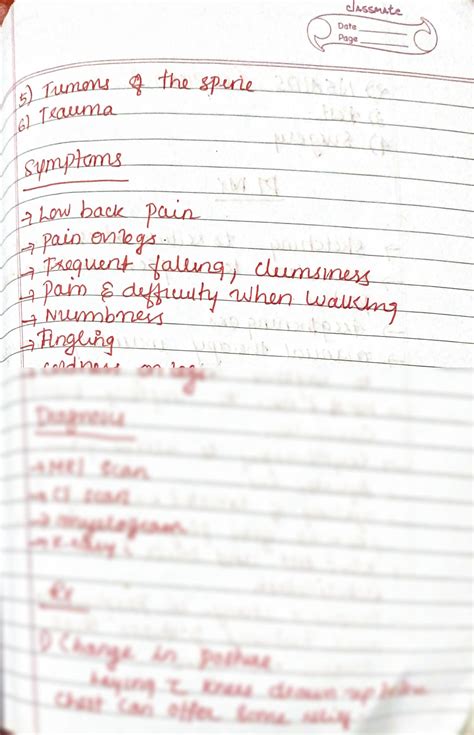 classmate
Date
Page
5) Tumors of the spine
6) Trauma
Symptoms
→ Low back pain
→ pain on legs.
→ Frequent falling, clumsiness
→ Pain & difficulty when walking
→ Numbness
→ Tingling
→ coldness on legs
Diagnosis
→ MRI scan
→ CT scan
→ myelogram
→ X-ray
Rx
1) Change in posture
laying knees drawn up
chest can offer some relief